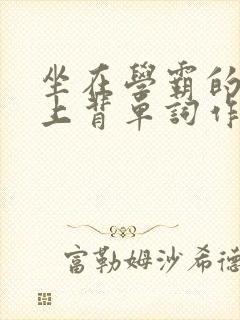 坐在學霸的
上背單詞作
富勒姆沙希德